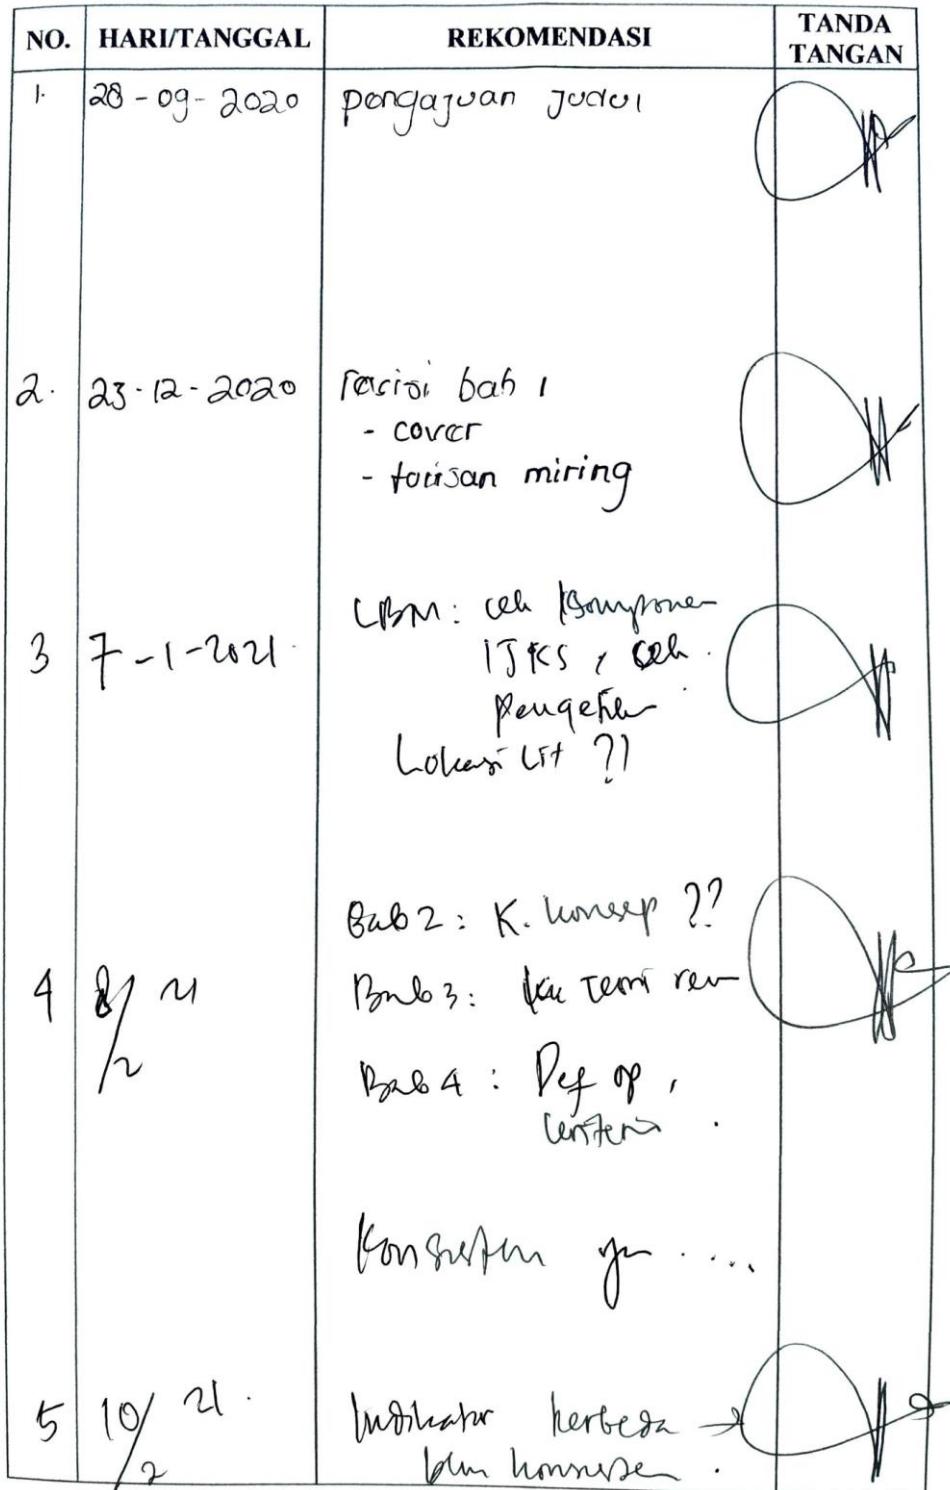 NO. HARI/TANGGAL REKOMENDASI TANDA TANGAN
1. 28-09-2020 pengajuan judul
2. 23-12-2020 revisi bab 1
- cover
- tulisan miring
LBM: cek komponen
3 7-1-2021. IJKS, cek.
Lokasi Lit ?!
Bab 2: K. konsep ??
4 8/2 21 Bab 3:
Bab 4: Def op,
kriteria.
Konsisten ya ....
5 10/2 21. Indikator berbeda →
blm konsisten.